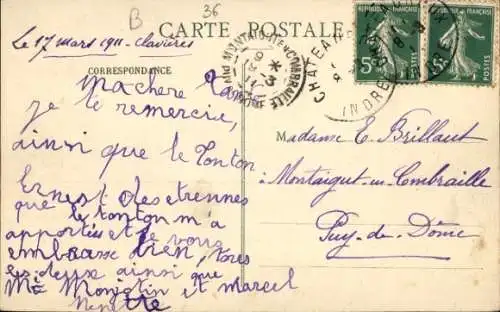 B 36
CARTE POSTALE
Le 17 mars 1911 - Clavières
CORRESPONDANCE
Ma chère Tante
je te remercie,
ainsi que le Tonton
Ernest des etrennes
que le tonton m'a
apportées et je vous
embrasse bien, tous
les deux ainsi que
Mr et Marcel
Ninette
Madame E. Brillaut
Montaigut-en-Combraille
Puy-de-Dôme
MONTAIGUT-EN-COMBRAILLE
CHATEAU
INDRE
REPUBLIQUE FRANÇAISE
5c
REPUBLIQUE FRANÇAISE
5c